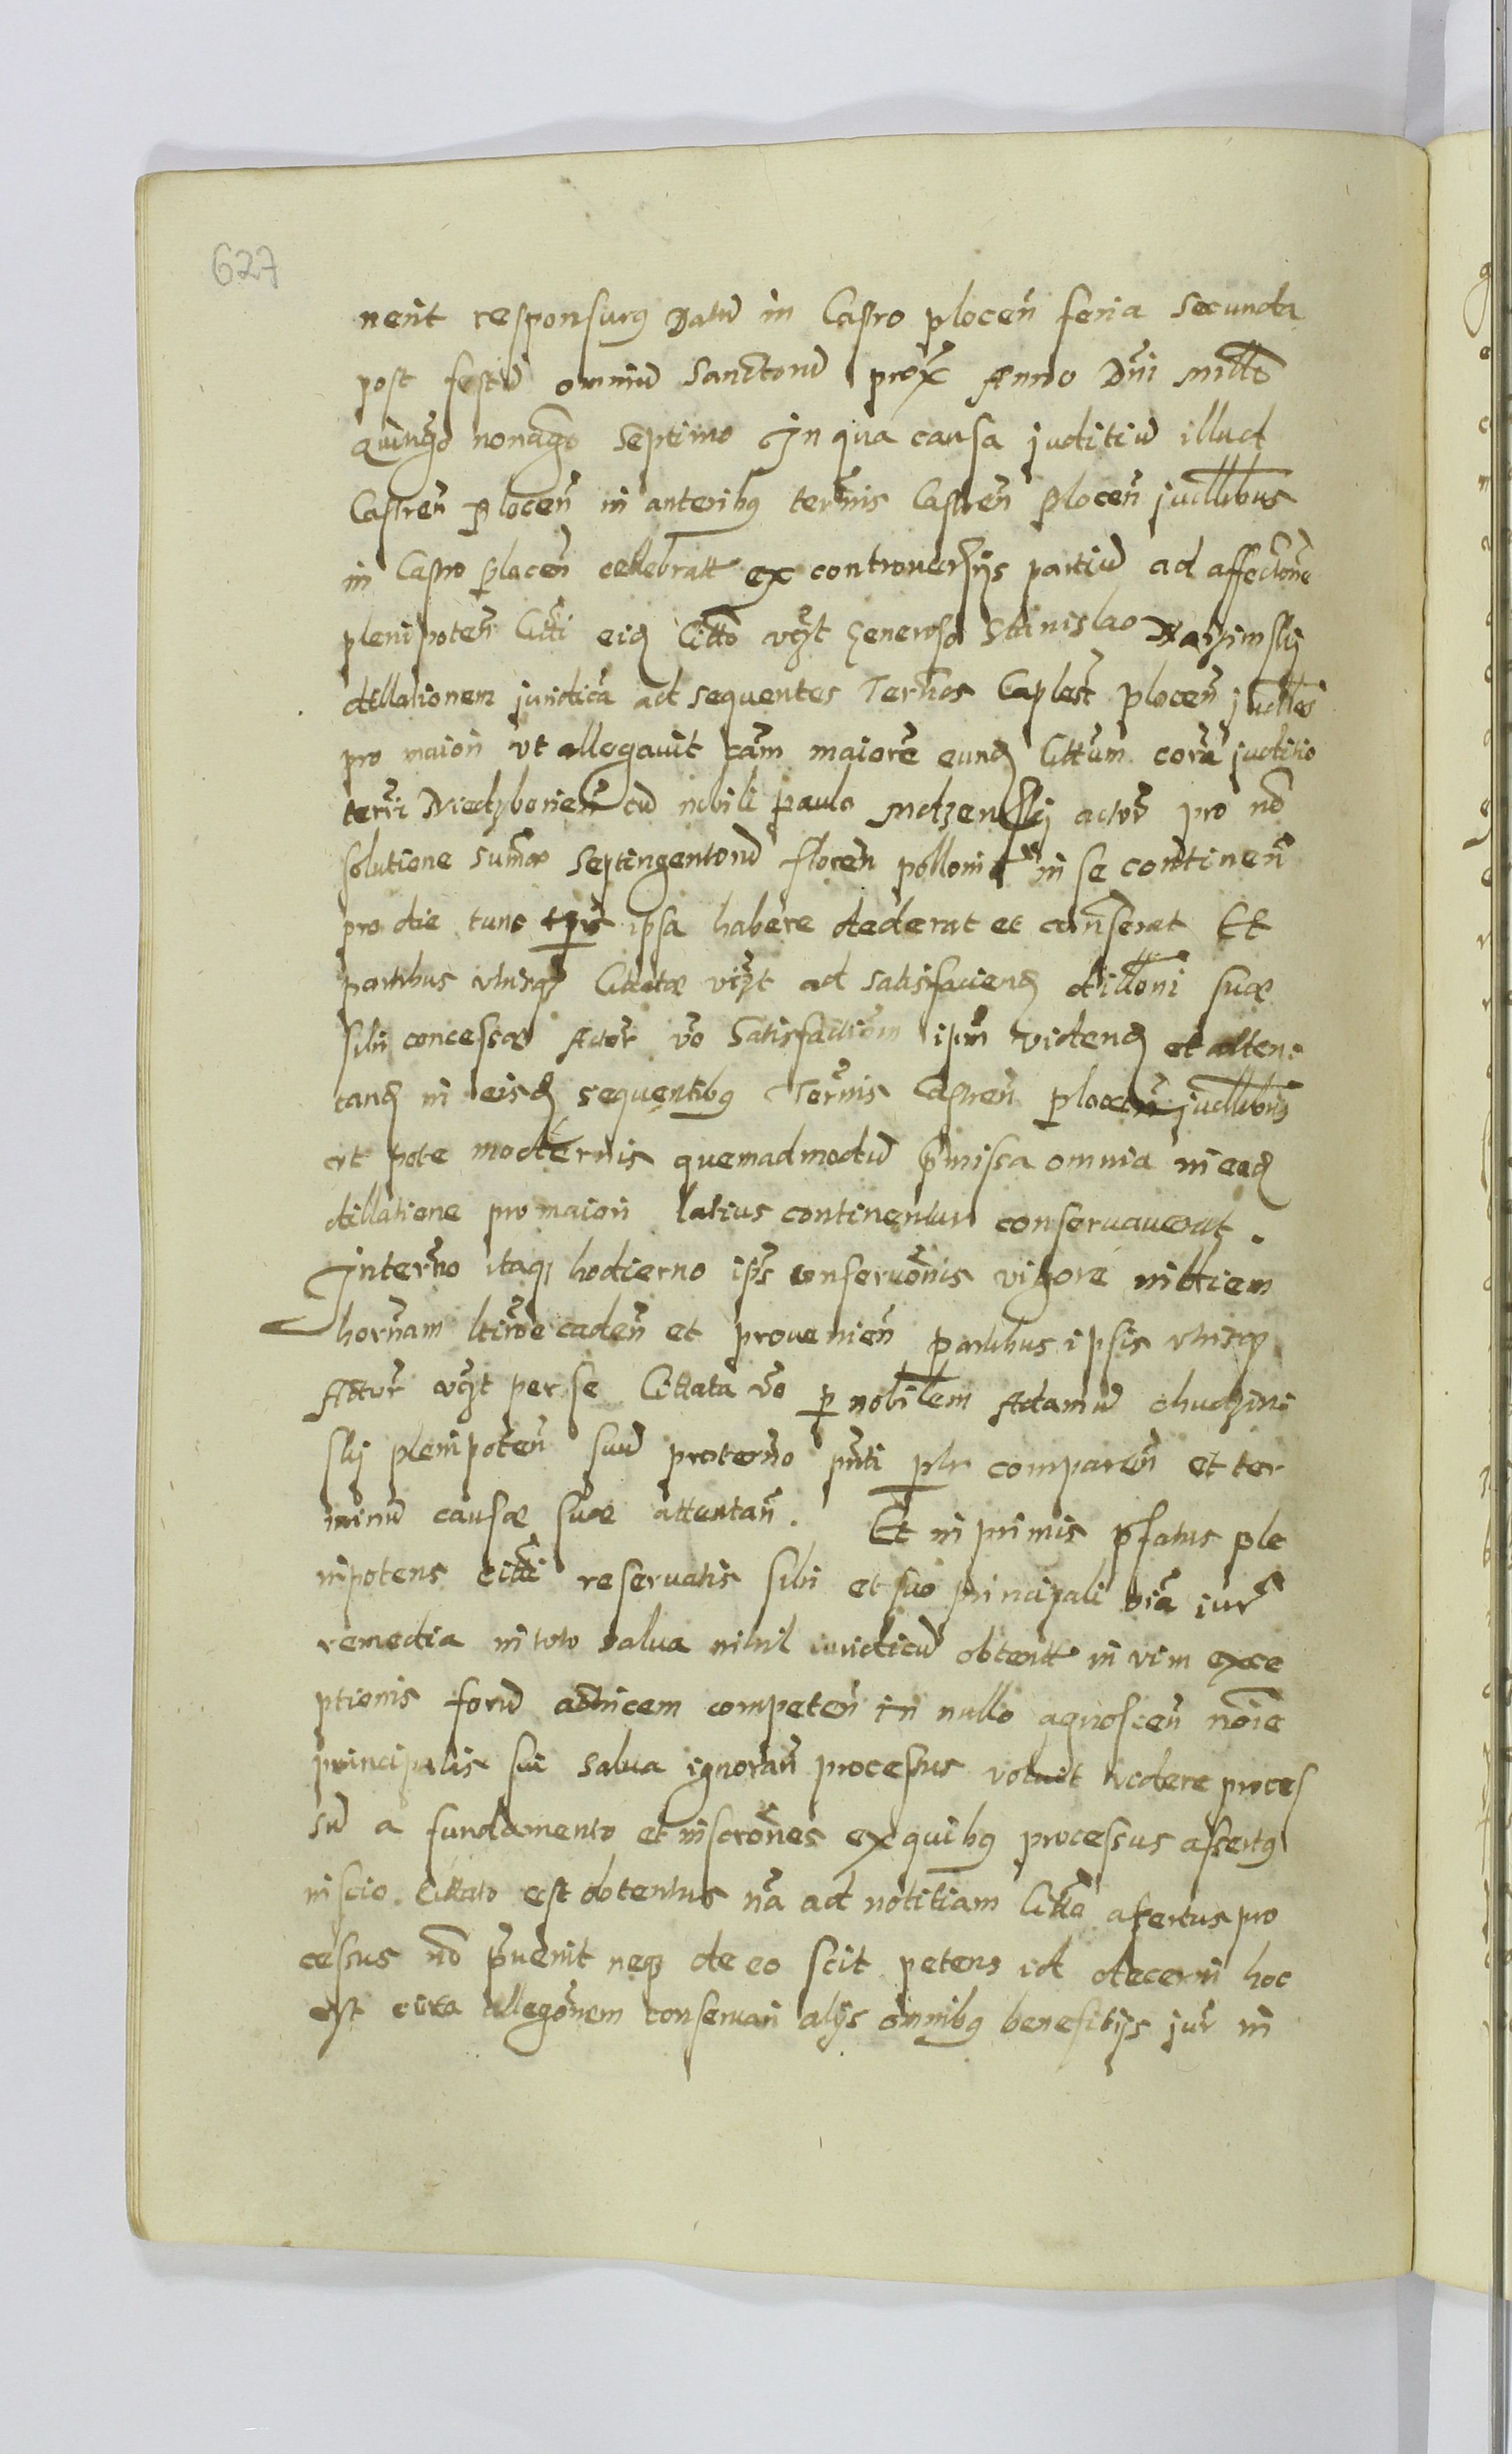 627
nerit responsurus Datum in Castro plocen feria secunda
post festū omniū Sanctorū prox Anno Dni Millo
Quingo nonago Septimo In qua causa juditiū illud
Castren plocen in anteribus terminis Castren Plocen judllibus
in Castro Plocen cellebratt ex controuersiis partiū ad affectione
plenipoten Citti eid Citto vczt Generoso Stanislao
dillationem juridica ad sequentes Termos Castren plocen judlles
pro maiori vt allegavit cam maiore eund Cittum cora juditio
termi cū nobili Paulo actore pro no
solutione sumæ Septingentorū florcen polloni in se continen
pro die tunc ipsa habere dederat et conserat Et
partibus vtrisq Cittatæ vczt ad satisfaciend dillōni suæ
sibi concessæ Actor vo Satisfactiom ipm videnḍ et atten-
tand in eisd sequentibus Termis Castren plocen judllibus
ut pote modernis quemadmodū pmissa omnia in ead
dillatione pro maiori latius continentur conseruauerat.
In termo itaq hodierno ips conseruōnis vigore in diem
hornam ltime caden et prouenien partibus ipsis vtrisq
Actor vczt per se Cittata vo p nobilem Adamū chudzin-
skj plenipoten suū pro termo pnti plr comparen et ter-
minū causæ suæ attentan. Et in primis pfatus ple
nipotens citti reseruatis sibi et suo principali oia iur
remedia in toto salua nihil iuridicū obtentt in vim exce
ptionis forū adinicem competen in nullo agnoscen noie
principalis sui salua ignoran processus voluit videre proces
sū a fundamento et inscrones ex quibus processus assertus
in scio. Cittato est obtentus na ad notitiam Citta assertus pro
cessus no puenit neq de eo scit petens id decerni hoc
est citra allegōnem conseruari alijs omnibus benefitijs jur in